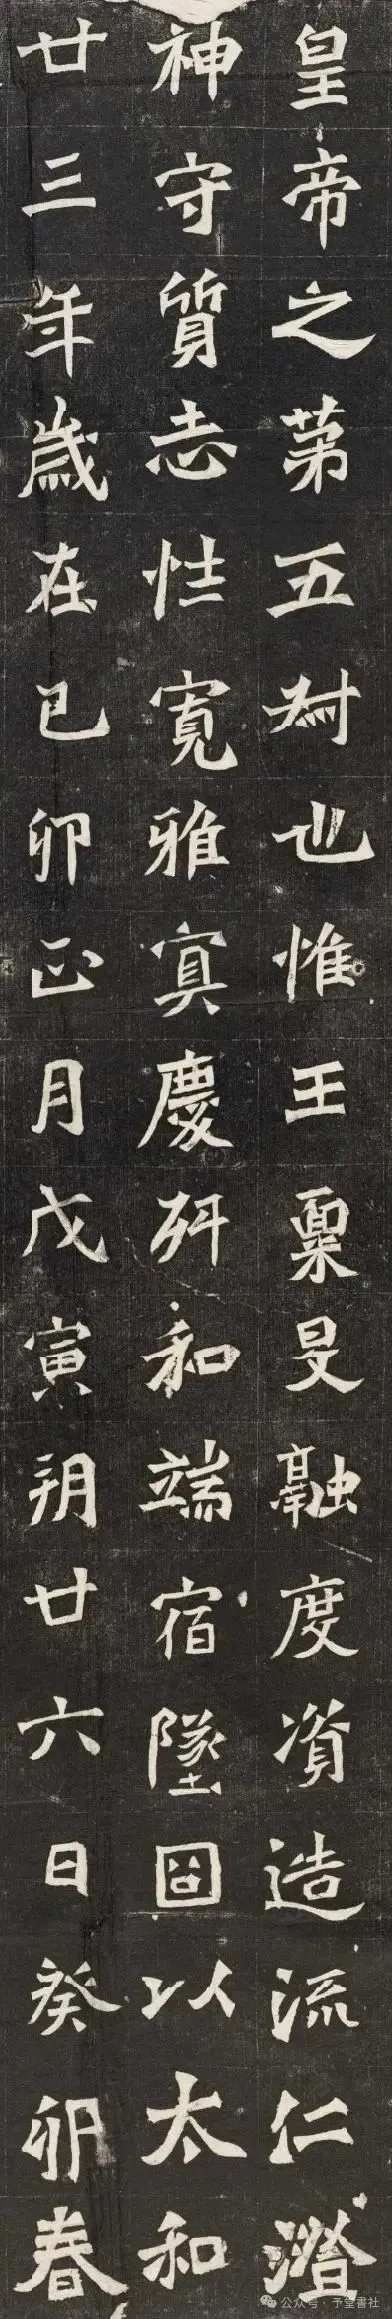 皇帝之苐五尌也惟王稟旻融度資造流仁澄
神守質志性寬雅寘慶舛和端宿墜固以太和
廿三年歲在己卯正月戊寅朔廿六日癸卯春
公众号·予堂書社